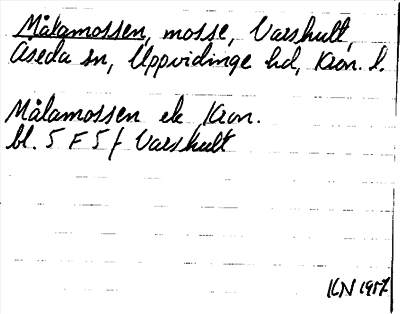 Målamossen, mosse, Varshult,
Åseda sn, Uppvidinge hd, Kron. l.
Målamossen ek Kron.
bl. 5 F 5 f Varshult
KN 1957